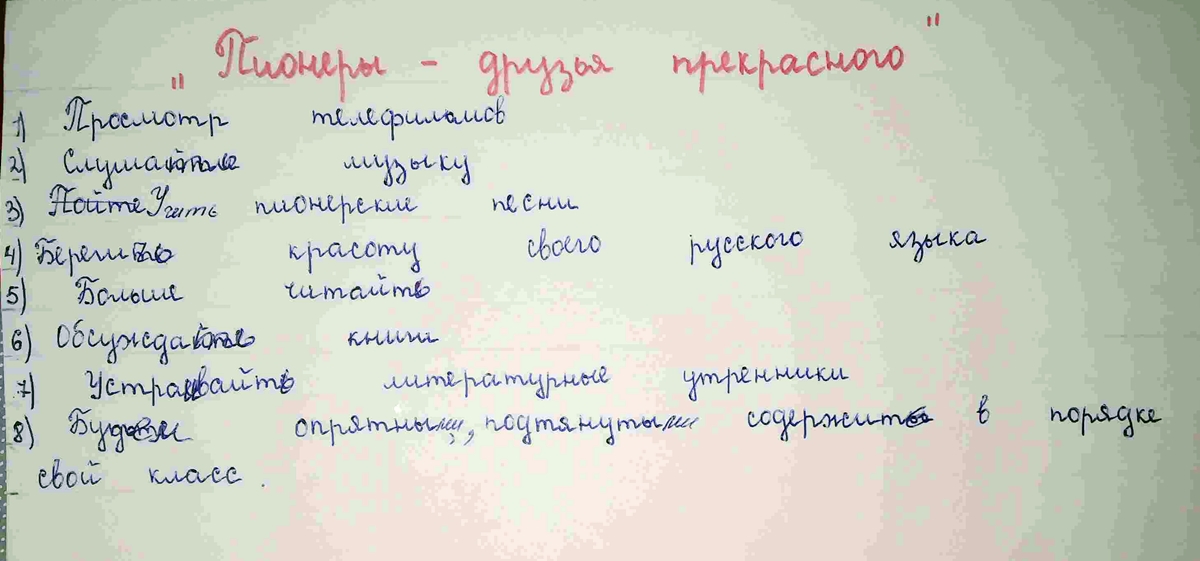 „Пионеры - друзья прекрасного"
1) Просмотр телефильмов
2) Слушать музыку
3) Учить пионерские песни
4) Беречь красоту своего русского языка
5) Больше читать
6) Обсуждать книги
7) Устраивать литературные утренники
8) опрятными, подтянутыми содержать в порядке
свой класс.